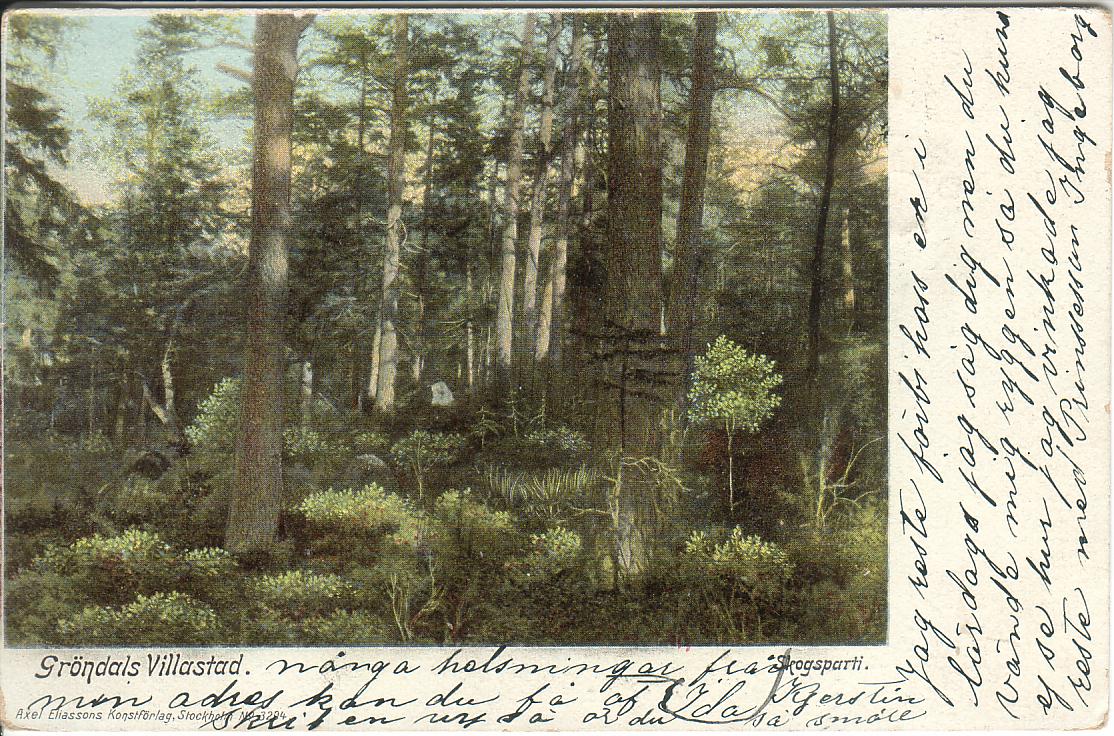 Jag reste förbi hass er i
lördags jag såg dig men du
vände mig ryggen så du kund
ej se hur jag vinkade jag
reste med Prinsessan Ingeborg
Gröndals Villastad.
Skogsparti.
många helsningar från Kjerstin
min adres kan du få af Ida
skrif en är du så snäll
Axel Eliassons Konstförlag, Stockholm. No 3294